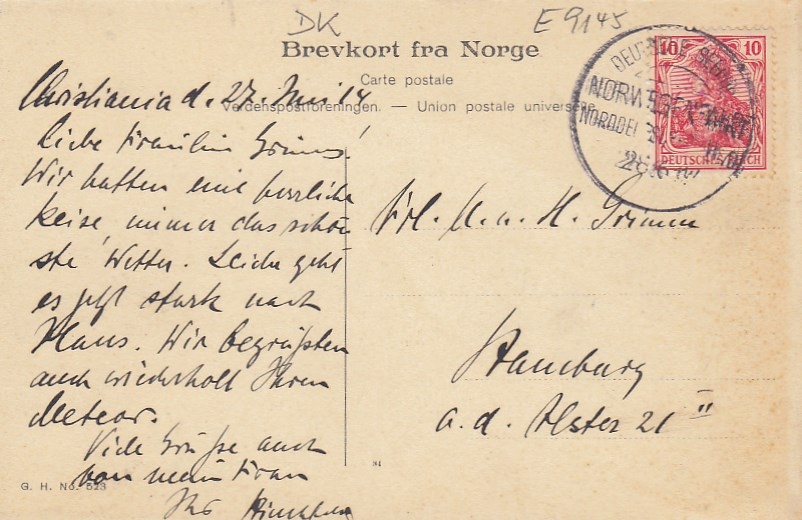 DK E 9145
Brevkort fra Norge
Carte postale
Verdenspostforeningen. — Union postale universelle
10 10
DEUTSCHES REICH
NORWEGENFAHRT
Christiania d. 27. Juni 14
Liebe Fräulein Grimm!
Wir hatten eine herrliche
Reise, immer das schön
ste Wetter. Leider geht
es jetzt stark nach
Haus. Wir begrüßten
auch wiederholt Ihren
Meteor.
Viele Grüße auch
von mein Frau
Ihr
Frl. M. u. H. Grimm
Hamburg
a. d. Alster 21 II
G. H. No. 523